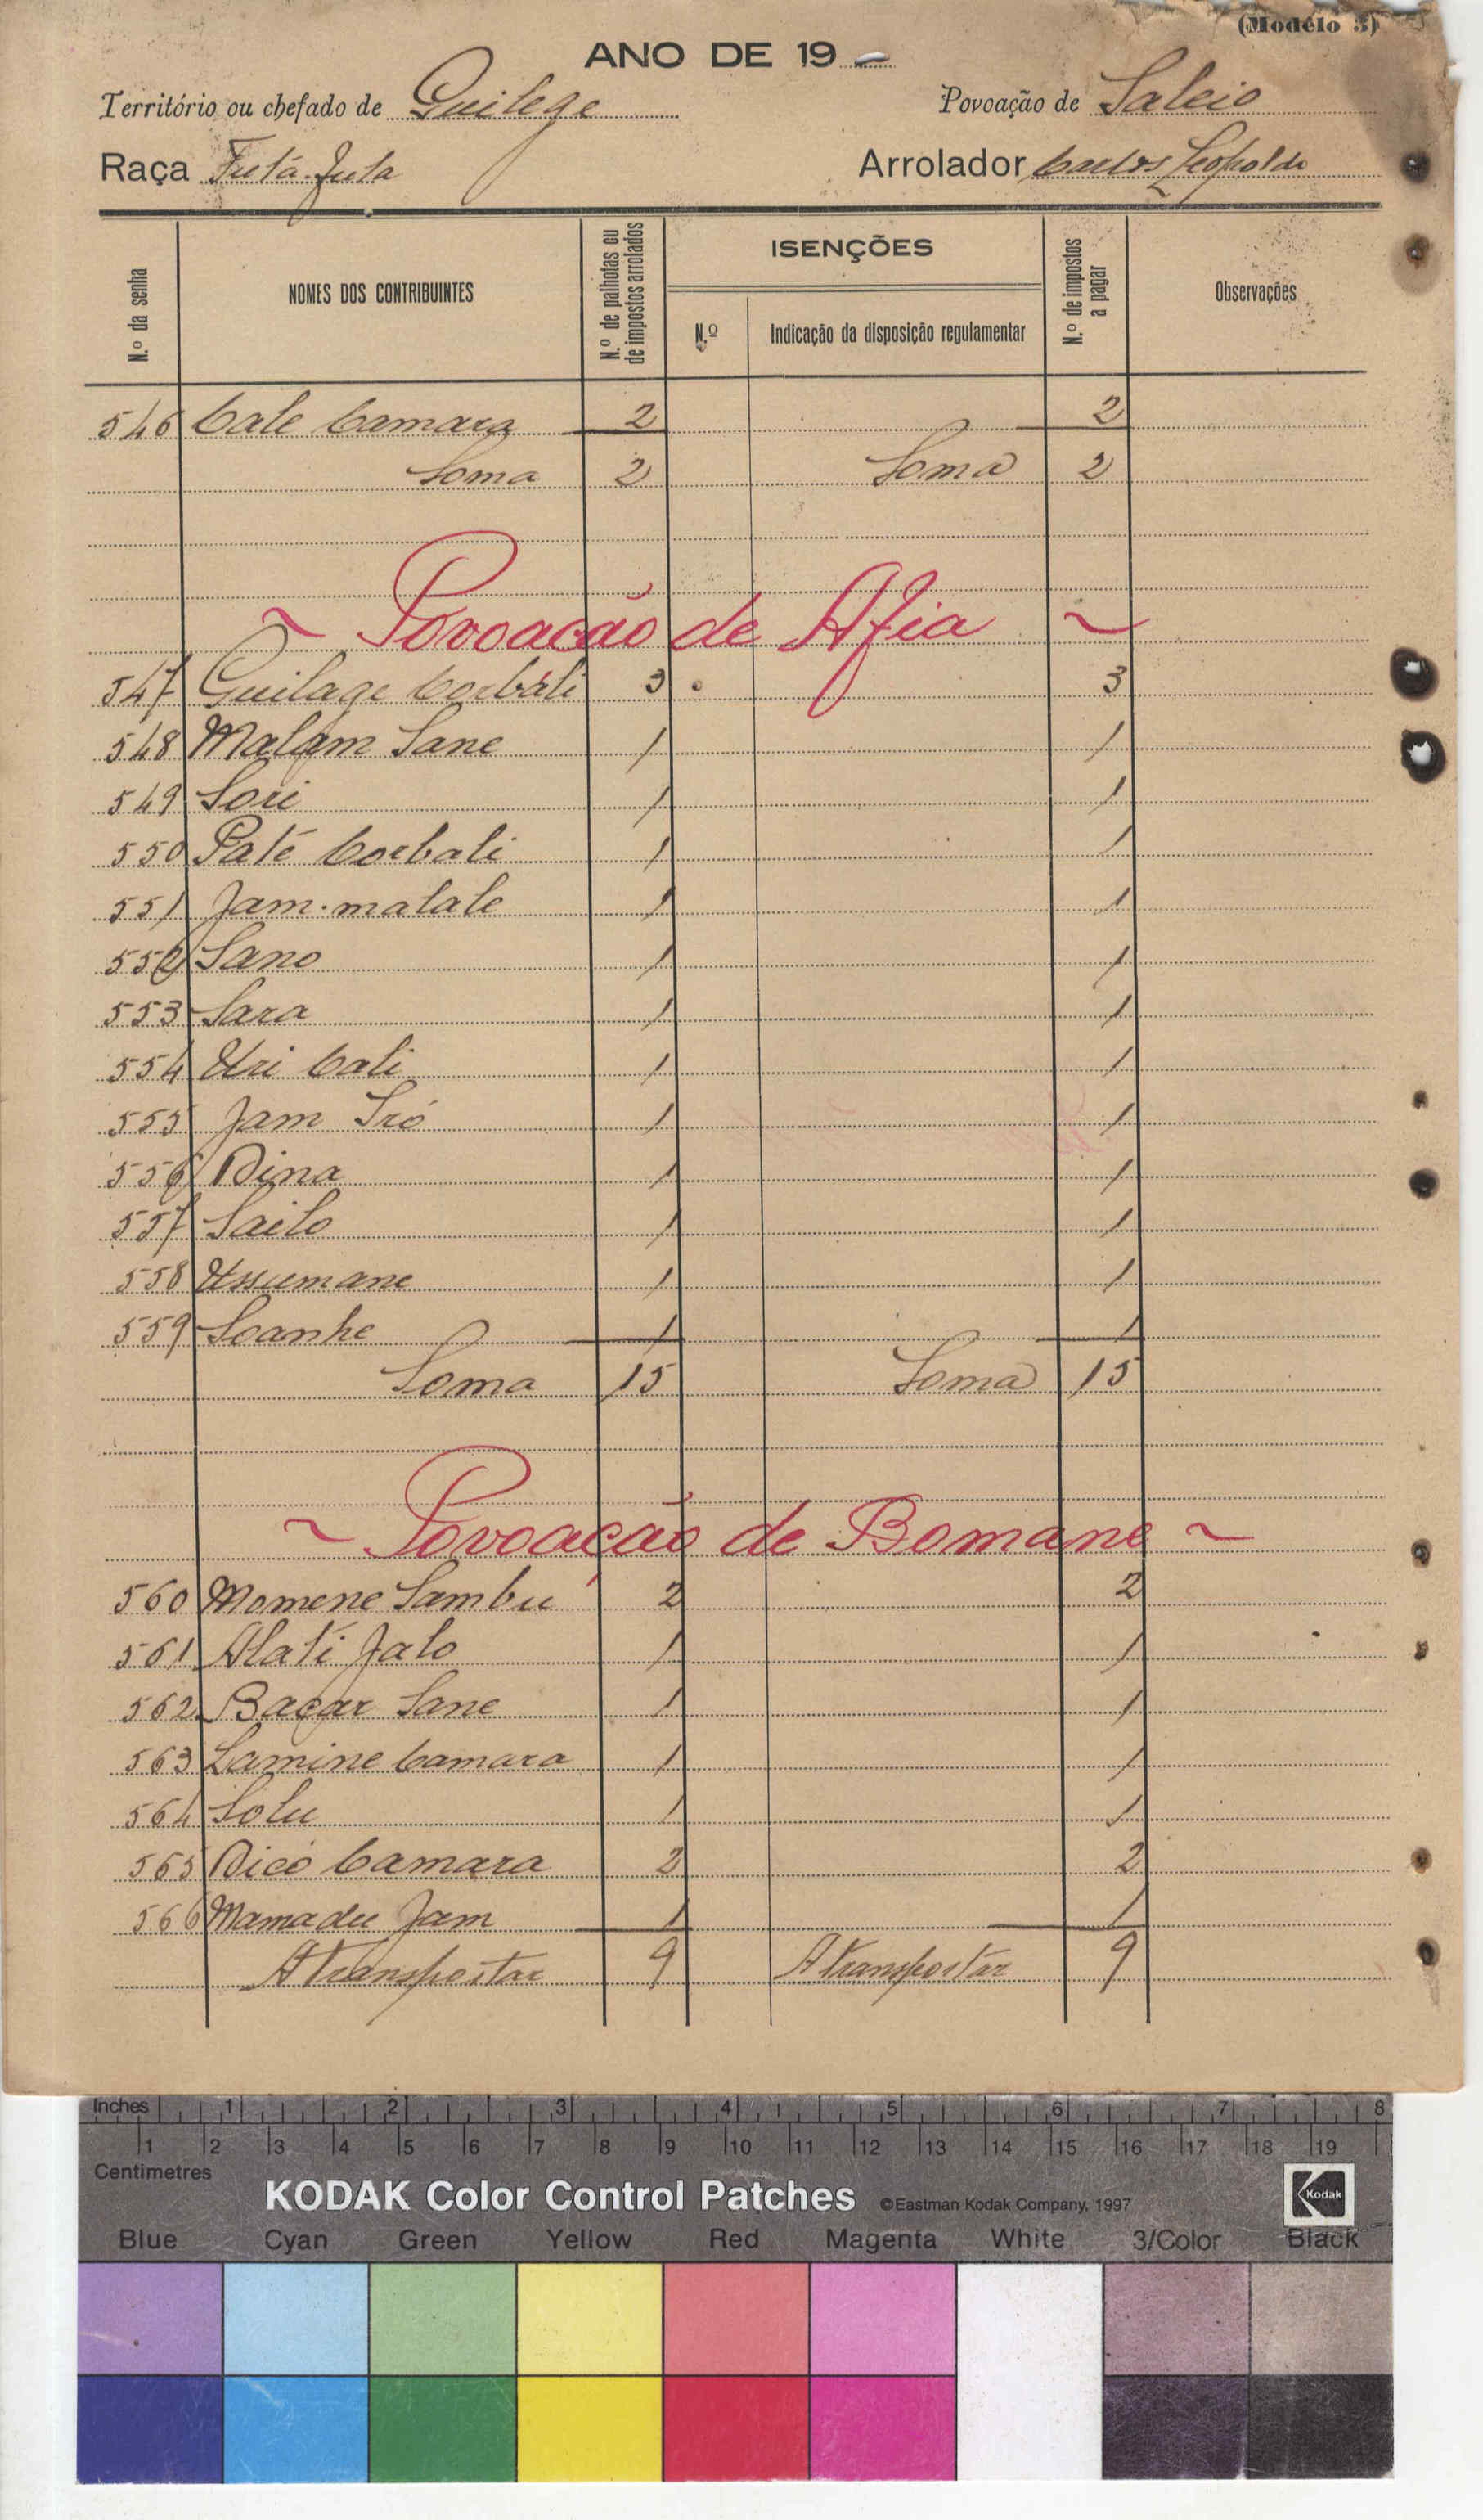 (Modélo 3)
ANO DE 19 -
Território ou chefado de Guilege Povoação de Saleio
Raça Futá-Juta Arrolador Carlos Leopoldo
N.º da senha NOMES DOS CONTRIBUINTES N.º de palhotas ou de impostos arrolados ISENÇÕES N.º Indicação da disposição regulamentar N.º de impostos a pagar Observações
546 Cale Camara 2 2
Soma 2 Soma 2
~ Povoacão de Afia ~
547 Guilage Corbáli 3 3
548 Malam Sane 1 1
549 Sori 1 1
550 Paté Corbali 1 1
551 Jam-malale 1 1
552 Sano 1 1
553 Sara 1 1
554 Uri Cali 1 1
555 Jam Sró 1 1
556 Dina 1 1
557 Sailo 1 1
558 Ussumane 1 1
559 Soanhe 1 1
Soma 15 Soma 15
~ Povoação de Bomane ~
560 Momene Sambu 2 2
561 Alati Jalo 1 1
562 Bacar Sane 1 1
563 Lamine Camara 1 1
564 Solu 1 1
565 Dico Camara 2 2
566 Mamadu Jam 1 1
A transportar 9 A transportar 9
Inches 1 2 3 4 5 6 7 8
1 2 3 4 5 6 7 8 9 10 11 12 13 14 15 16 17 18 19
Centimetres
KODAK Color Control Patches ©Eastman Kodak Company, 1997 Kodak
Blue Cyan Green Yellow Red Magenta White 3/Color Black